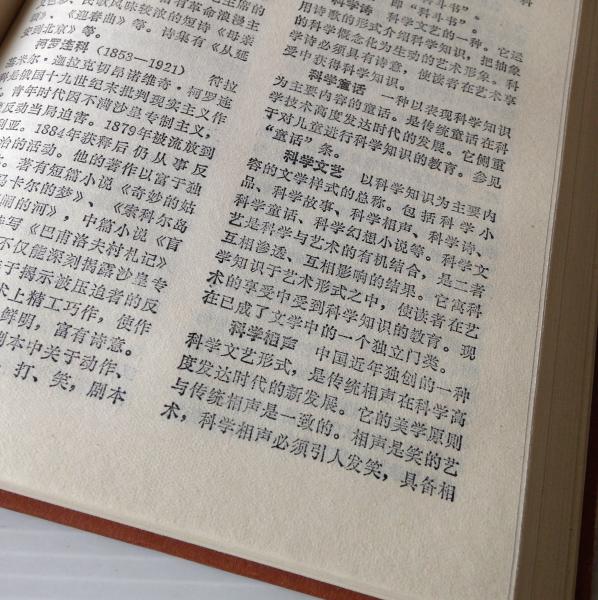 主席的
民歌风味较浓的短诗《母亲
《迎春曲》等。诗集有《从延
安到北京》等。
柯罗连科（1853—1921） 符拉
基米尔·迦拉克切昂诺维奇·柯罗连
俄国十九世纪末批判现实主义作
青年时代因不满沙皇专制主义，
反动当局迫害。1879年被流放到
利亚。1884年获释后仍从事反
治的活动。他的著作以富于独
著有短篇小说《奇妙的姑
马卡尔的梦》、《索科尔岛
丽的河》，中篇小说《盲
写《巴甫洛夫村札记》
不仅能深刻揭露沙皇专
于揭示被压迫者的反
术上精工巧作，使作
鲜明，富有诗意。
剧本中关于动作、
、打、笑，剧本
即“科斗书”。
科学诗 科学文艺的一种。它运
用诗歌的形式介绍科学知识，把抽象
的科学概念化为生动的艺术形象。科
学诗必须具有诗意，使读者在艺术享
受中获得科学知识。
科学童话 一种以表现科学知识
为主要内容的童话。是传统童话在科
学技术高度发达时代的发展。它侧重
于对儿童进行科学知识的教育。参见
“童话”条。
科学文艺 以科学知识为主要内
容的文学样式的总称。包括科学小
品、科学故事、科学相声、科学诗、
科学童话、科学幻想小说等。科学文
艺是科学与艺术的有机结合，是二者
互相渗透、互相影响的结果。它寓科
学知识于艺术形式之中，使读者在艺
术的享受中受到科学知识的教育。现
在已成了文学中的一个独立门类。
科学相声 中国近年独创的一种
科学文艺形式，是传统相声在科学高
度发达时代的新发展。它的美学原则
与传统相声是一致的。相声是笑的艺
术，科学相声必须引人发笑，具备相